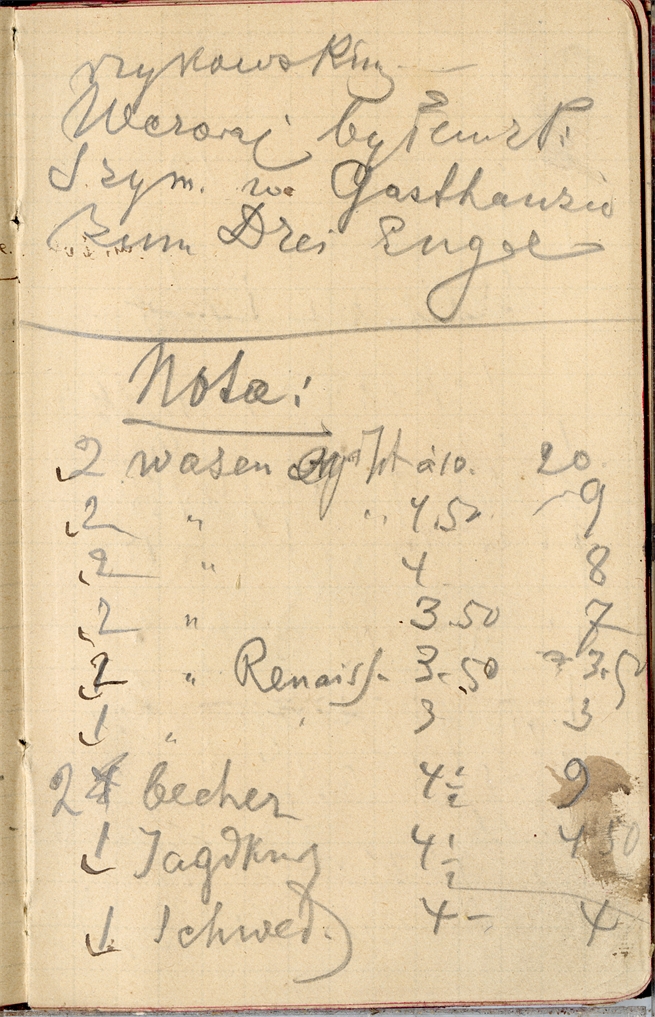 Wczoraj byłem z P.
Szym. w Gasthauzie
zum Drei Engel
Nota:
2 wasen à 10. 20
2 " " 4.50 9
2 " 4 8
2 " 3.50 7
2 " Renaiss. 3.50 3.50
1 " 3 3
2 becher 4 1/2 9
1 Jagdkrug 4 1/2 4 50
1 Schwed. 4 - 4